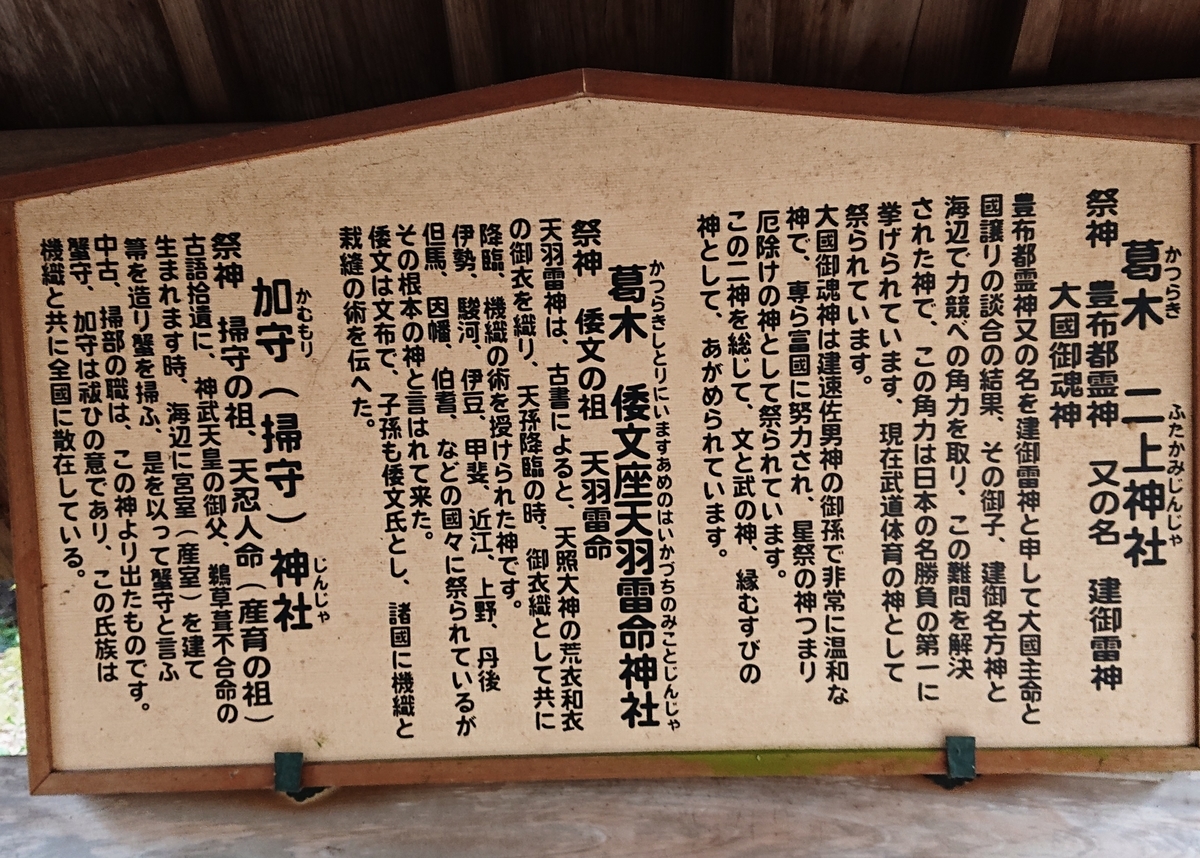 葛木 二上神社
かつらぎ ふたかみじんじゃ
祭神 豊布都霊神 又の名 建御雷神
大國御魂神
豊布都霊神又の名を建御雷神と申して大國主命と
國譲りの談合の結果、その御子、建御名方神と
海辺で力競べの角力を取り、この難問を解決
された神で、この角力は日本の名勝負の第一に
挙げられています、現在武道体育の神として
祭られています。
大國御魂神は建速佐男神の御孫で非常に温和な
神で、専ら富國に努力され、星祭の神つまり
厄除けの神として祭られています。
この二神を総じて、文と武の神、縁むすびの
神として、あがめられています。
葛木 倭文座天羽雷命神社
かつらきしとりにいますあめのはいかづちのみことじんじゃ
祭神 倭文の祖 天羽雷命
天羽雷神は、古書によると、天照大神の荒衣和衣
の御衣を織り、天孫降臨の時、御衣織として共に
降臨、機織の術を授けられた神です。
伊勢、駿河、伊豆、甲斐、近江、上野、丹後
但馬、因幡、伯耆、などの國々に祭られているが
その根本の神と言はれて来た。
倭文は文布で、子孫も倭文氏とし、諸國に機織と
栽縫の術を伝へた。
加守（掃守）神社
かむもり じんじゃ
祭神 掃守の祖、天忍人命（産育の祖）
古語拾遺に、神武天皇の御父、鵜草葺不合命の
生まれます時、海辺に宮室（産室）を建て
箒を造り蟹を掃ふ、是を以って蟹守と言ふ
中古、掃部の職は、この神より出たものです。
蟹守、加守は祓ひの意であり、この氏族は
機織と共に全國に散在している。